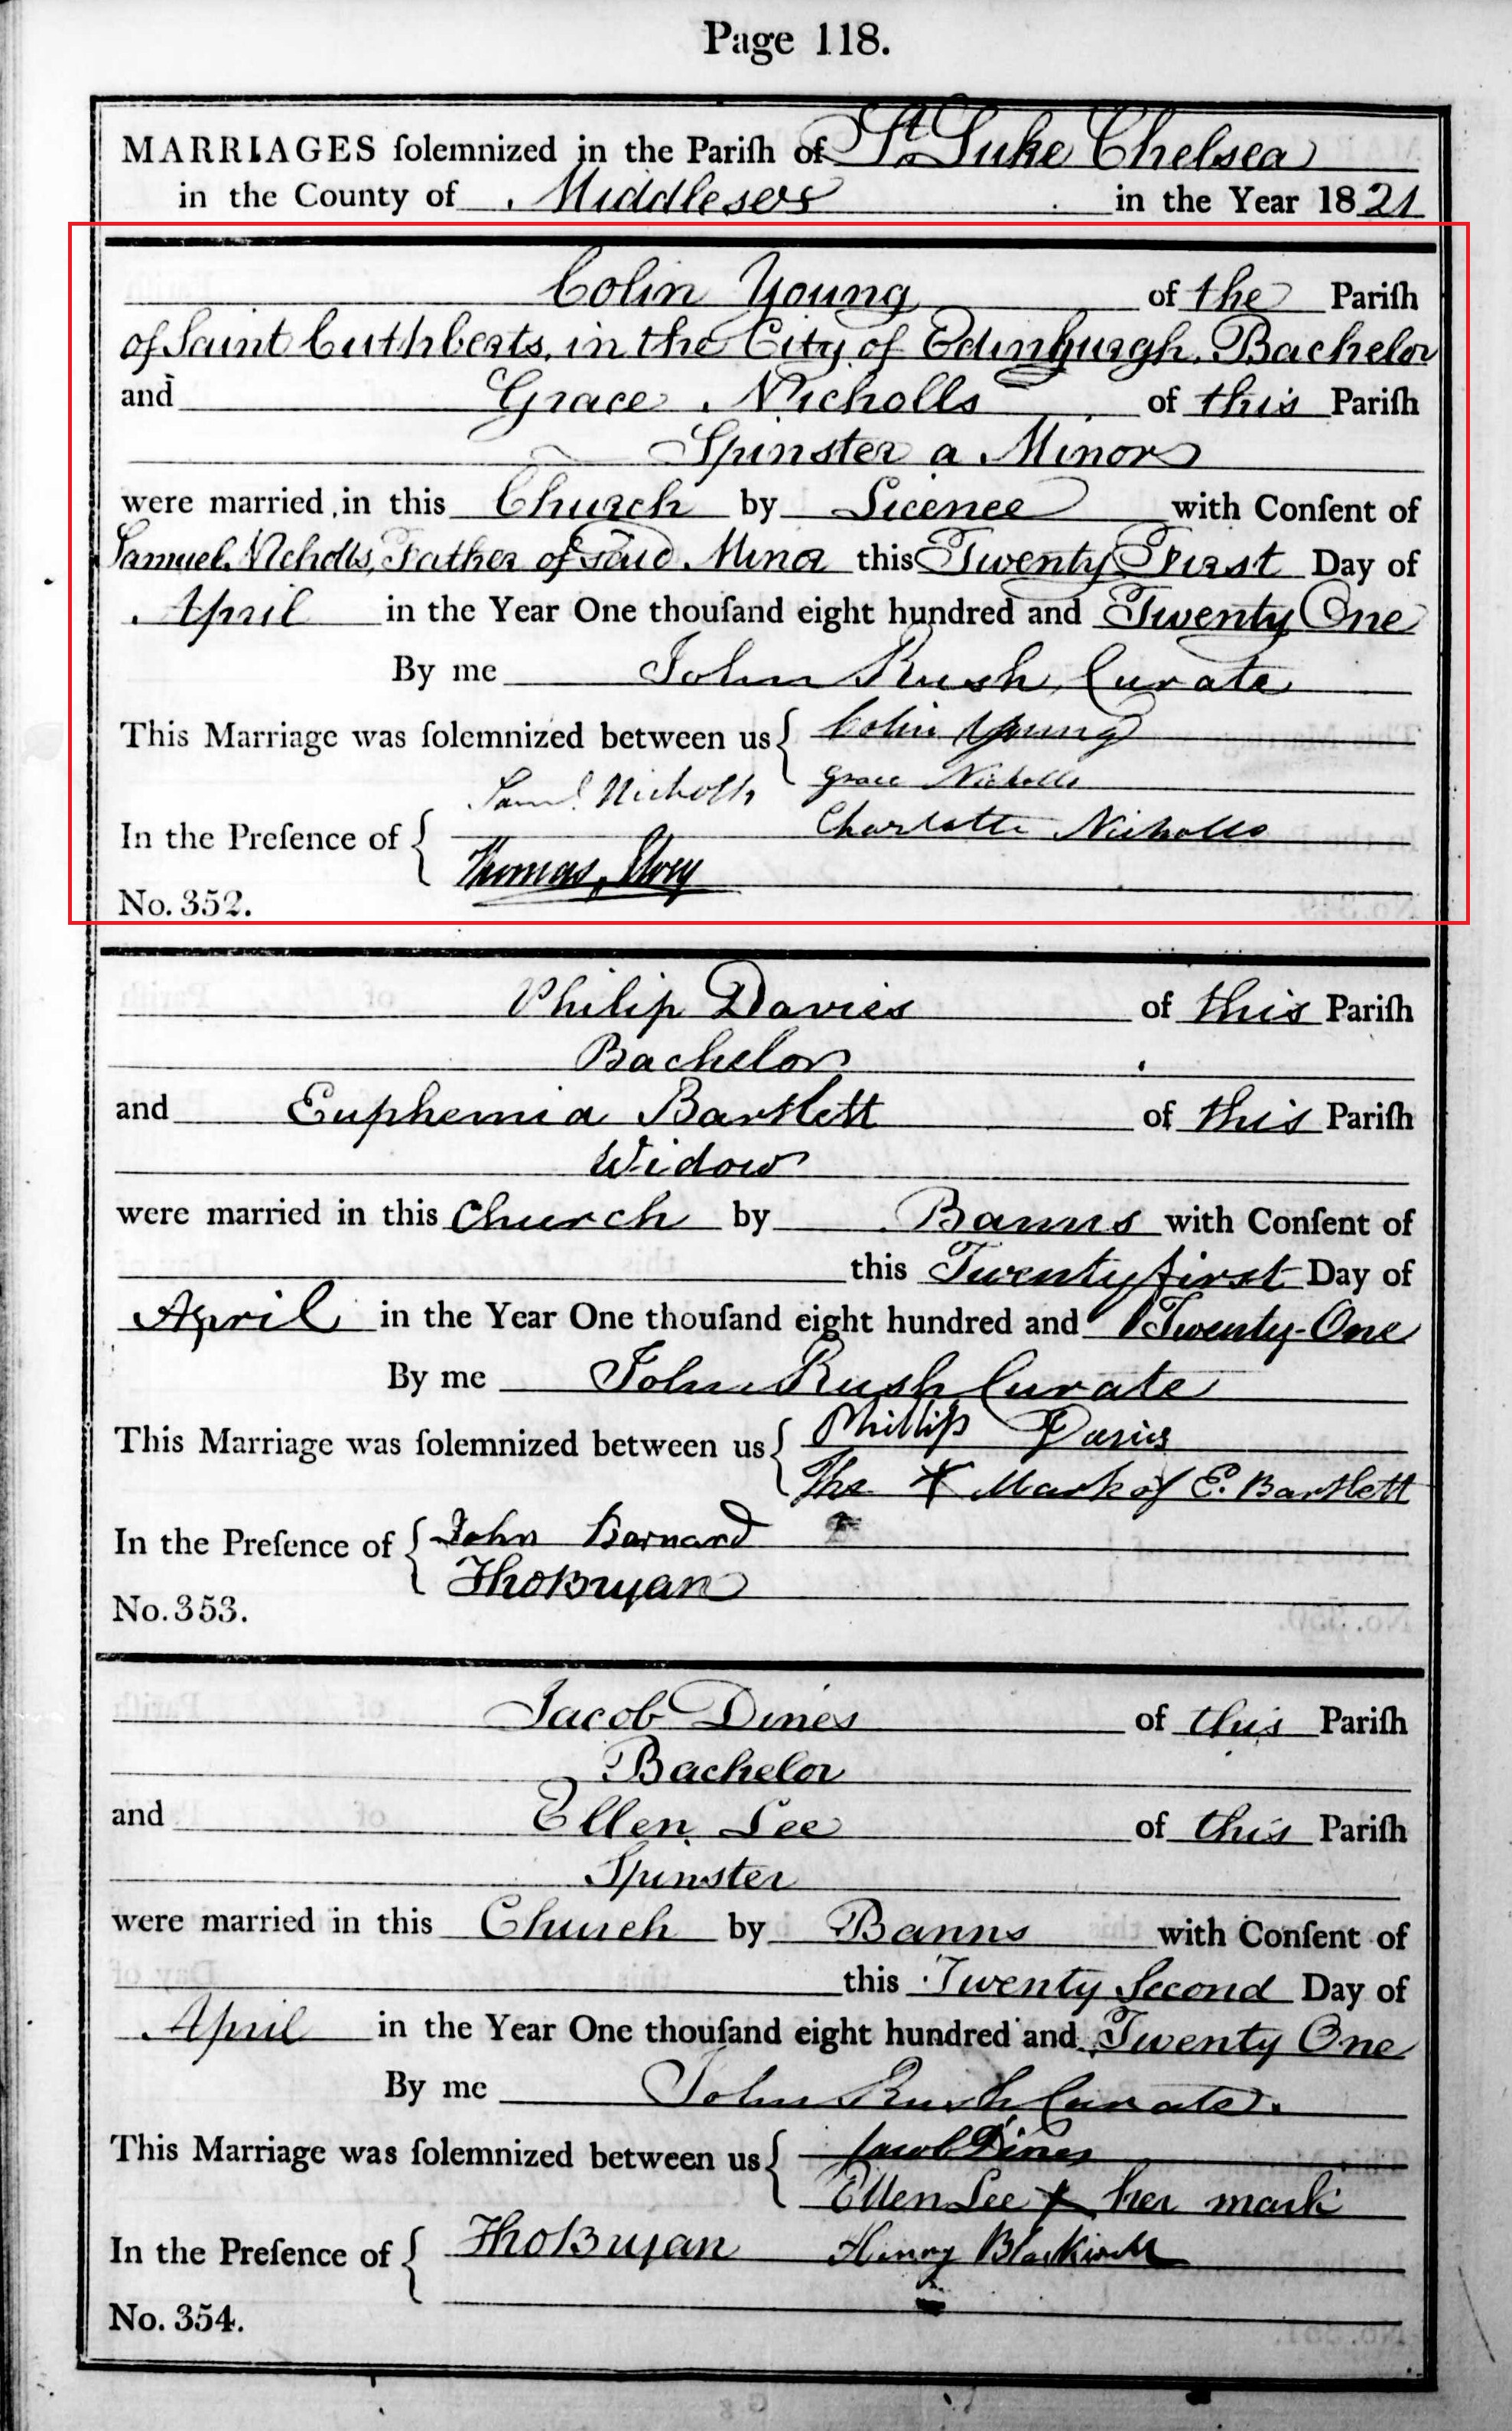 Page 118.
MARRIAGES ſolemnized in the Pariſh of St. Luke Chelsea
in the County of Middlesex in the Year 1821
Colin Young of the Pariſh
of Saint Cuthberts, in the City of Edinburgh, Bachelor
and Grace Nicholls of this Pariſh
Spinster a Minor
were married in this Church by Licence with Conſent of
Samuel Nicholls, Father of said Minor this Twenty First Day of
April in the Year One thouſand eight hundred and Twenty One
By me John Rush, Curate
This Marriage was ſolemnized between us { Colin Young
Grace Nicholls
Saml. Nicholls
In the Preſence of { Charlotte Nicholls
Thomas
No. 352.
Philip Davies of this Pariſh
Bachelor
and Euphemia Bartlett of this Pariſh
Widow
were married in this Church by Banns with Conſent of
this Twenty first Day of
April in the Year One thouſand eight hundred and Twenty-One
By me John Rush Curate
This Marriage was ſolemnized between us { Phillip Davies
The X Mark of E. Bartlett
In the Preſence of { John Barnard
Tho Bryan
No. 353.
Jacob Dines of this Pariſh
Bachelor
and Ellen Lee of this Pariſh
Spinster
were married in this Church by Banns with Conſent of
this Twenty Second Day of
April in the Year One thouſand eight hundred and Twenty One
By me John Rush Curate.
This Marriage was ſolemnized between us { Jacob Dines
Ellen Lee X her mark
In the Preſence of { Tho Bryan Henry
No. 354.